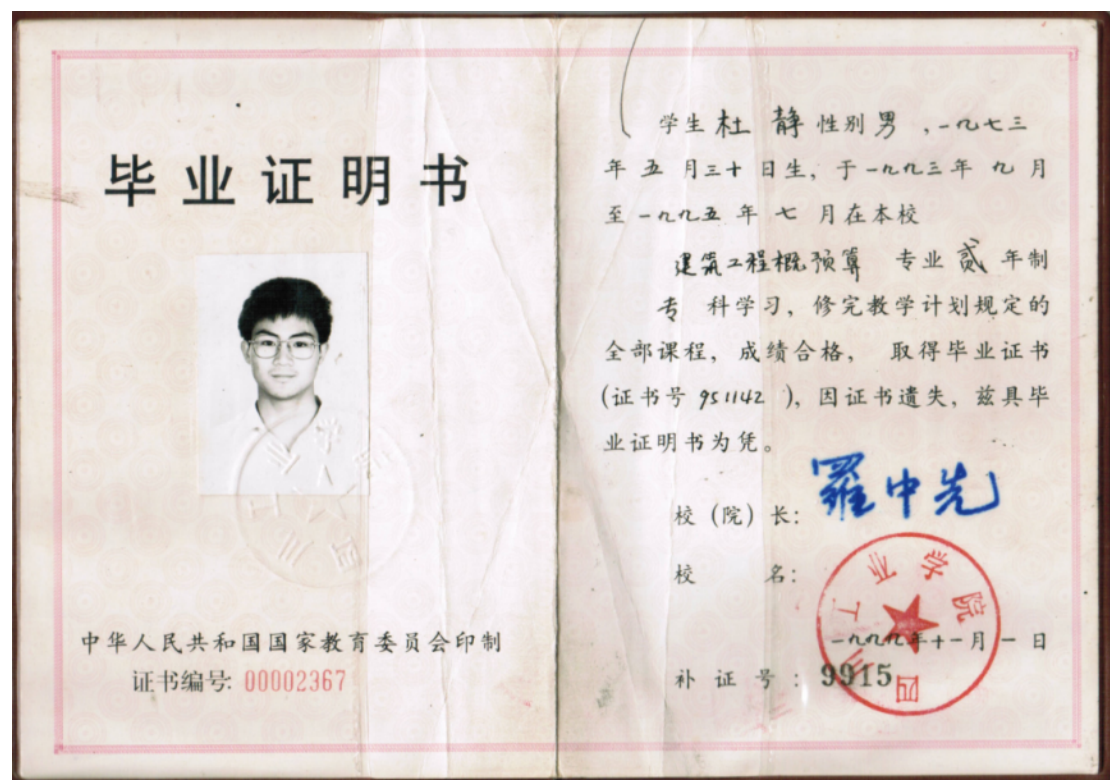 毕业证明书
中华人民共和国国家教育委员会印制
证书编号: 00002367
学生 杜 静 性别 男 ,一九七三
年 五 月三十日生, 于一九九三年 九 月
至一九九五 年 七 月在本校
建筑工程概预算 专业 贰 年制
专 科学习, 修完教学计划规定的
全部课程, 成绩合格, 取得毕业证书
(证书号 951142 ), 因证书遗失, 兹具毕
业证明书为凭。
校(院)长: 羅中先
校 名:
四川工业学院
一九九九年十一月一日
补 证 号 : 9915